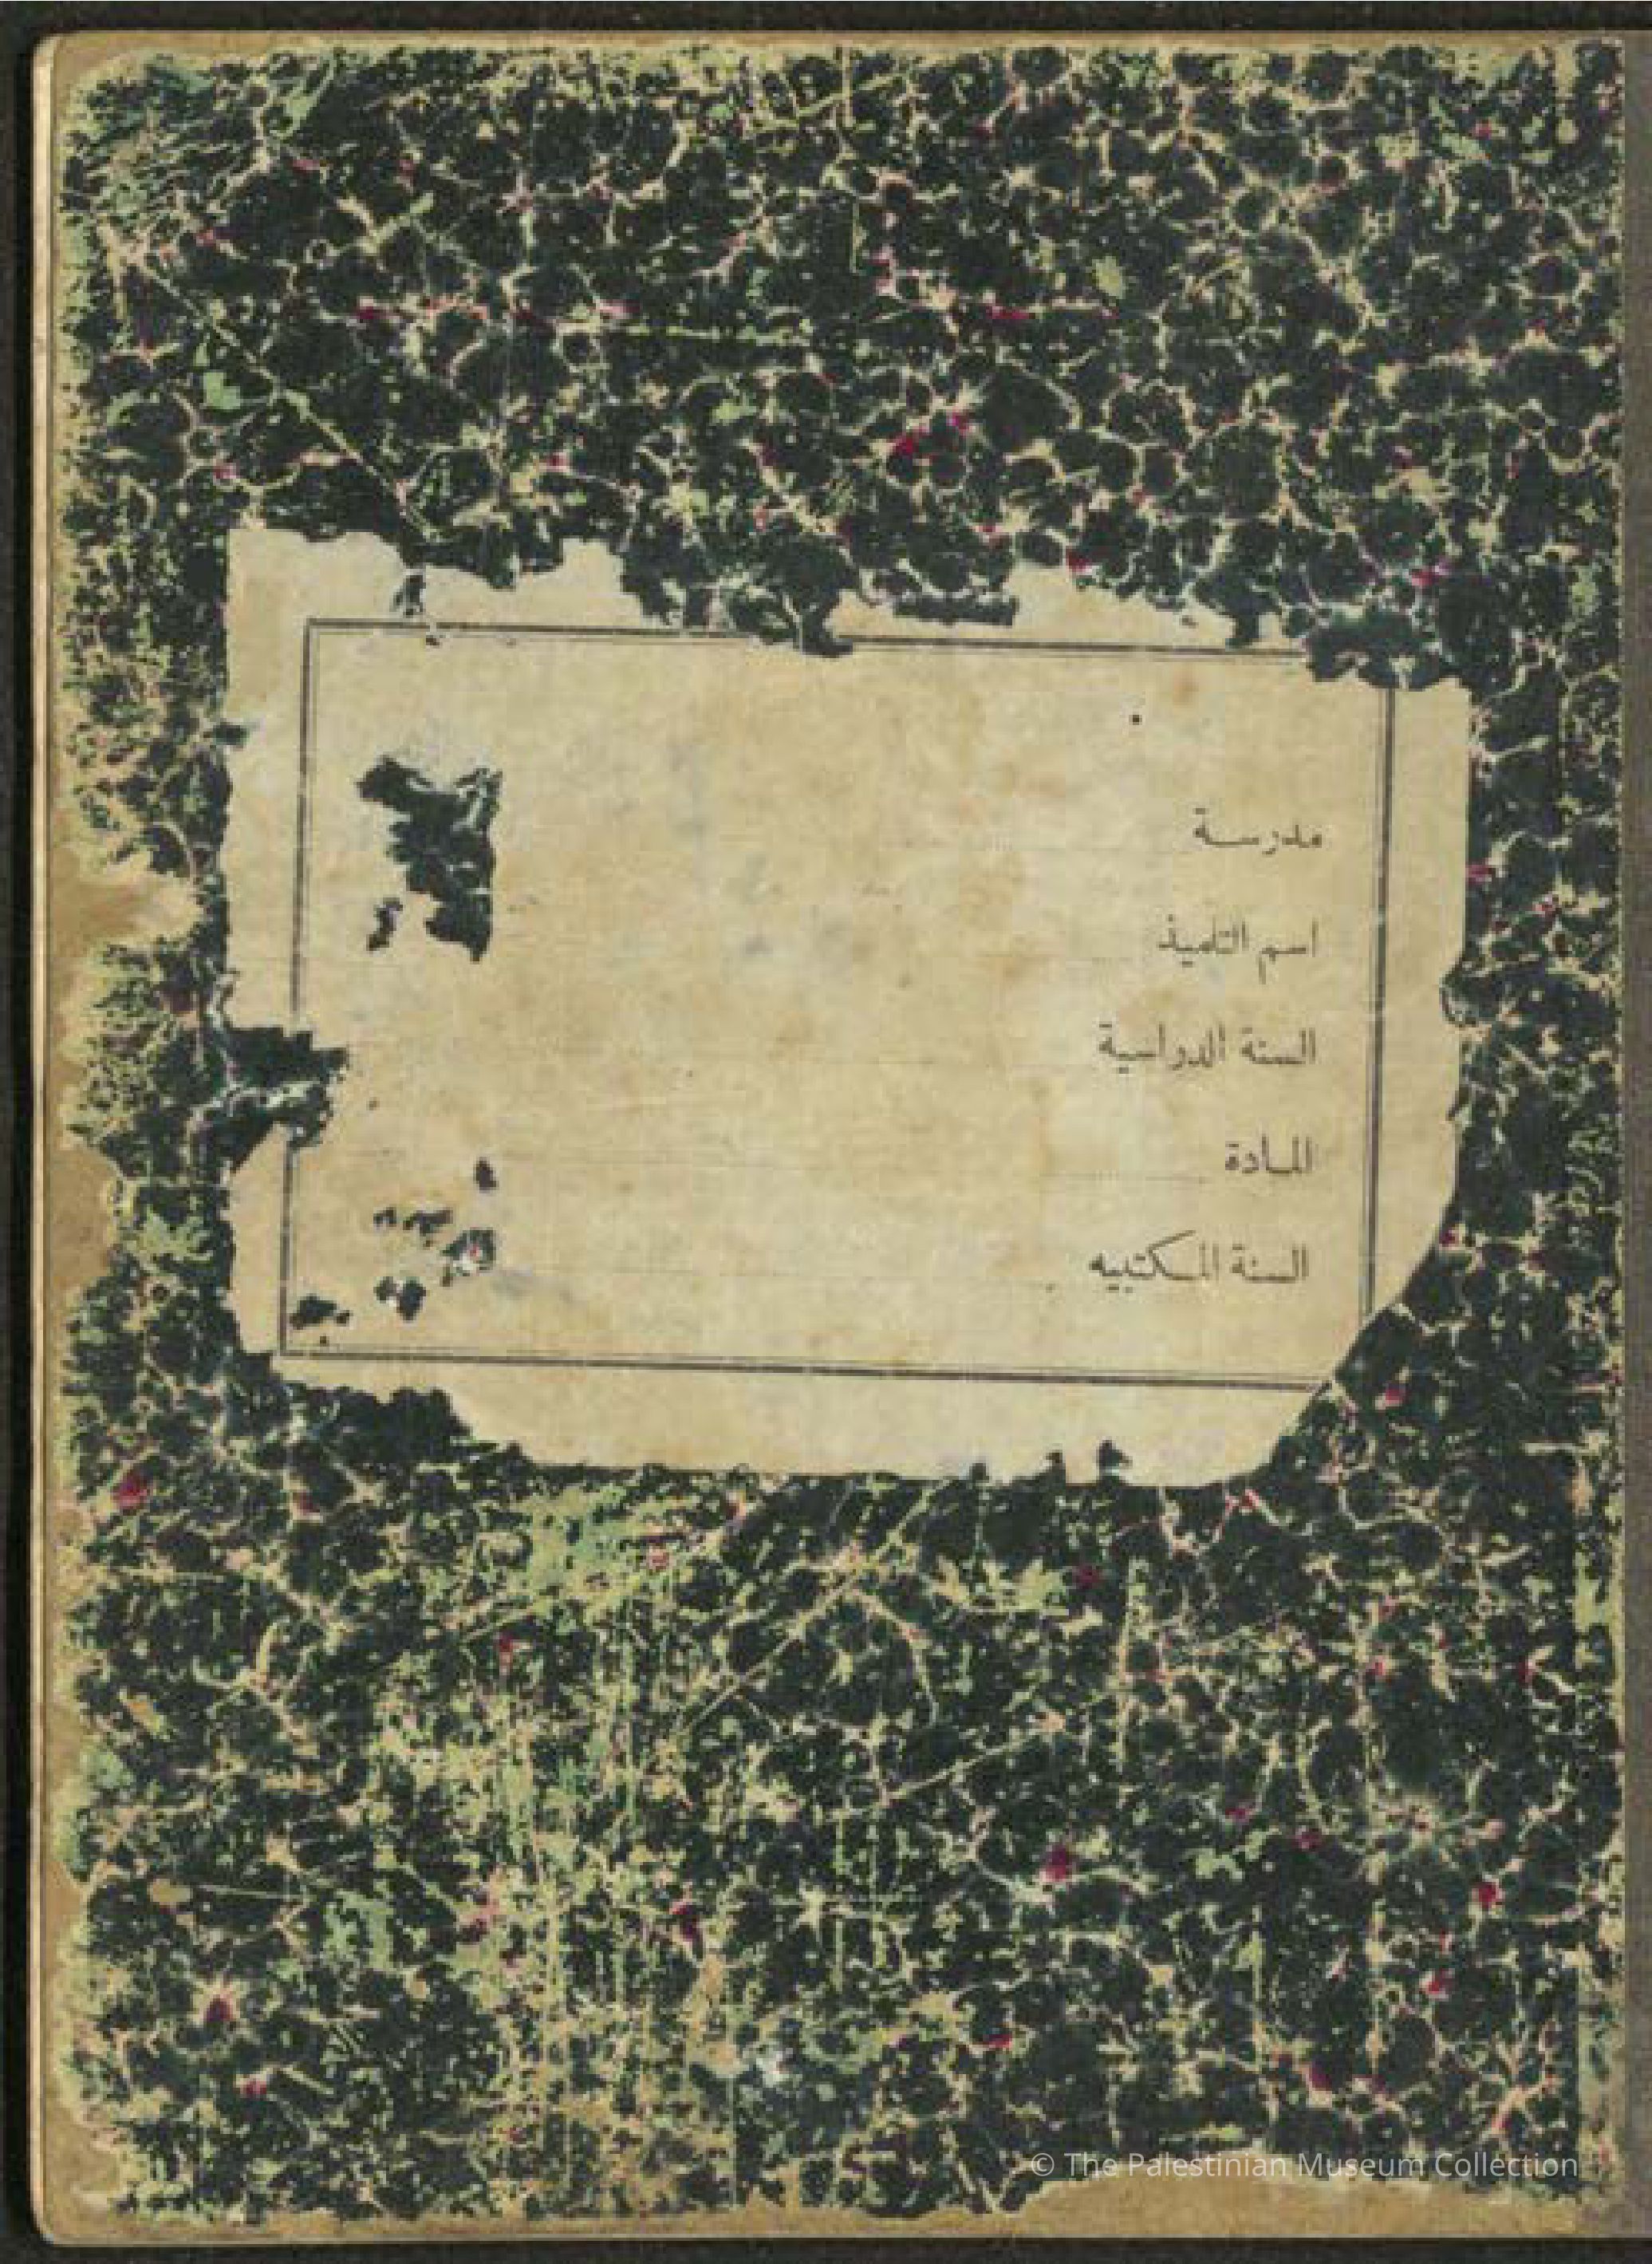 مدرسة
اسم التلميذ
السنة الدراسية
المادة
السنة المكتبيه
© The Palestinian Museum Collection